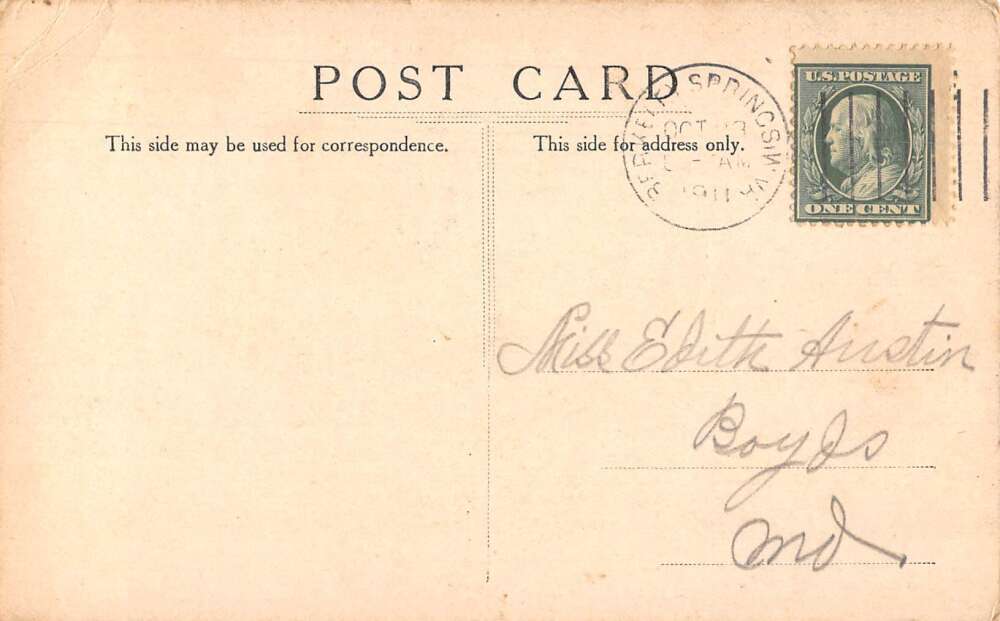 POST CARD
This side may be used for correspondence.
This side for address only.
BERKELEY SPRINGS W.VA.
OCT
AM
1911
U.S. POSTAGE
ONE CENT
Miss Edith Austin
Boyds
Md.